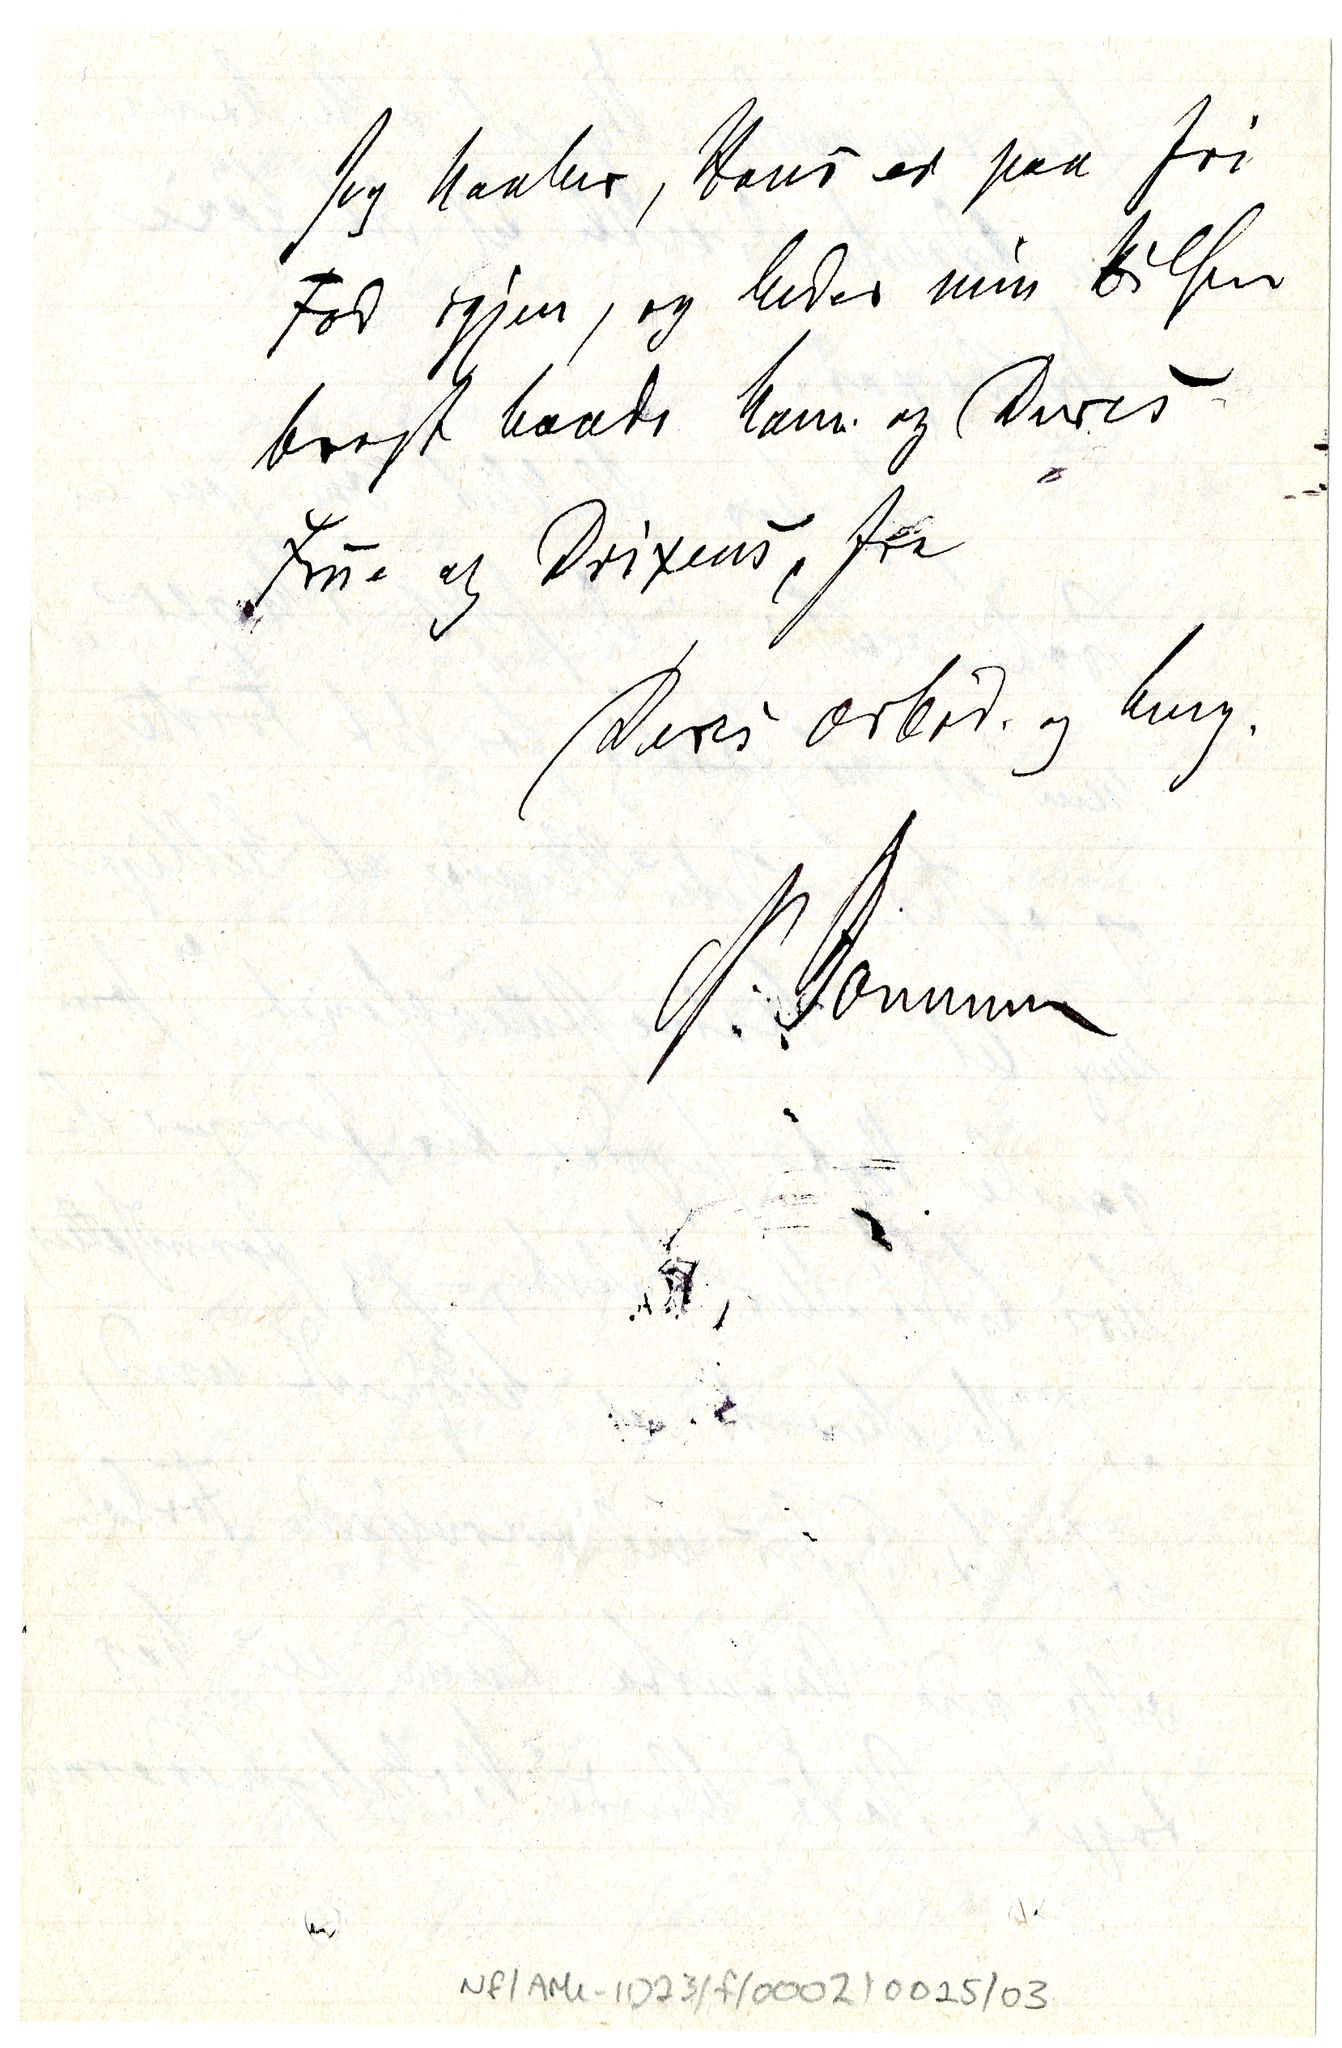 Jeg haaber, Hans er paa fri
Fod igjen, og beder min Hilsen
bragt baade ham og Deres
Frue og Drixens, fra
Deres ærbød. og heng.
NF/ARK-1023/F/0002/0025/03